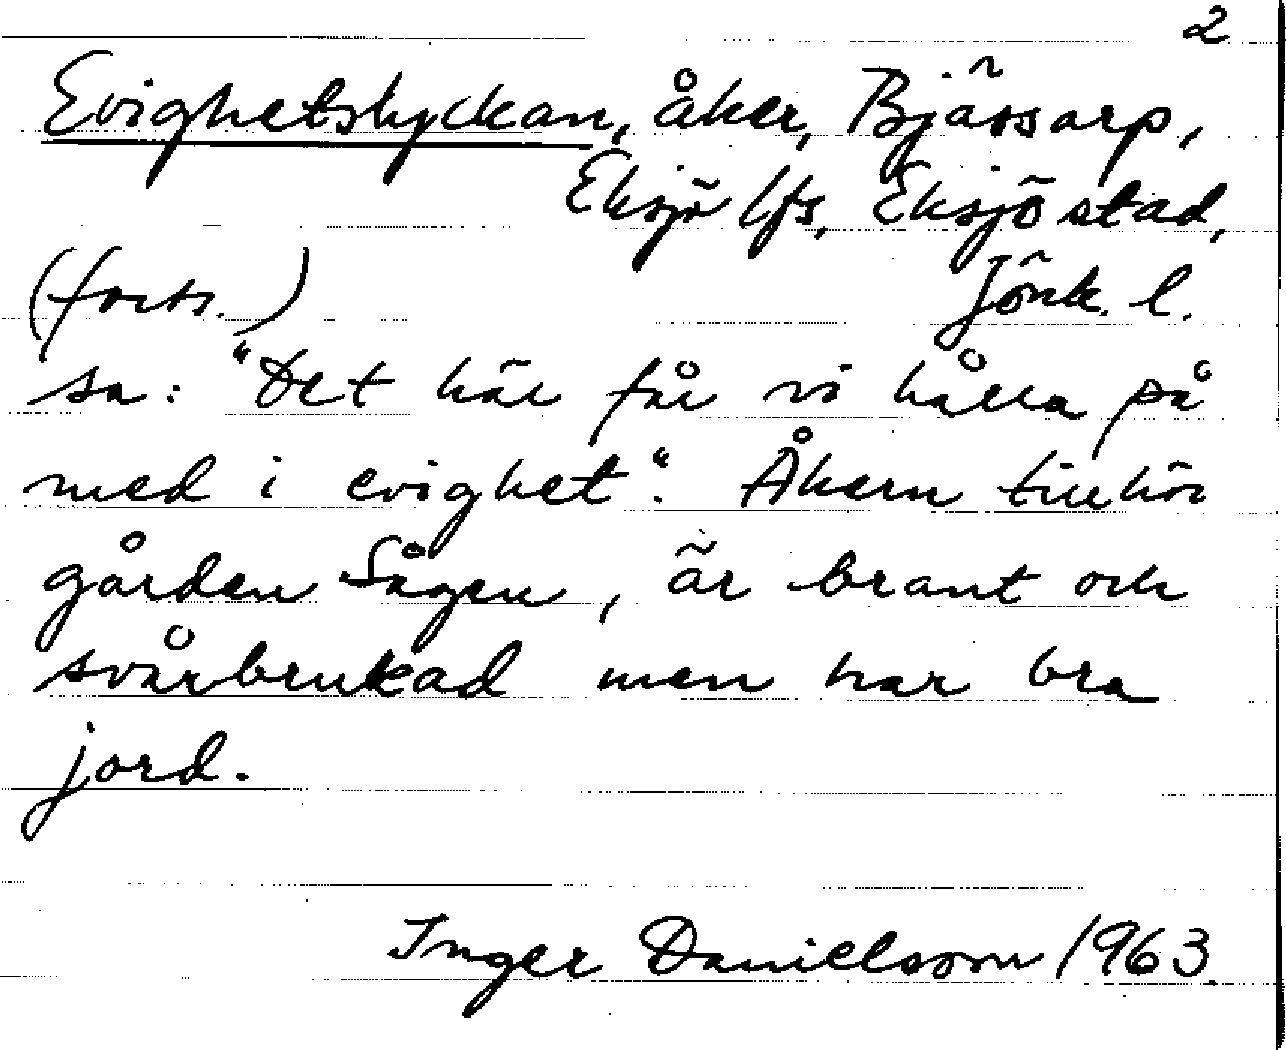 2
Evighetslyckan, åker, Bjässarp,
Eksjö lfs, Eksjö stad,
(forts.) Jönk. l.
sa: "Det här får vi hålla på
med i evighet". Åkern tillhör
gården Sågen, är brant och
svårbrukad men har bra
jord.
Inger Danielsson 1963.